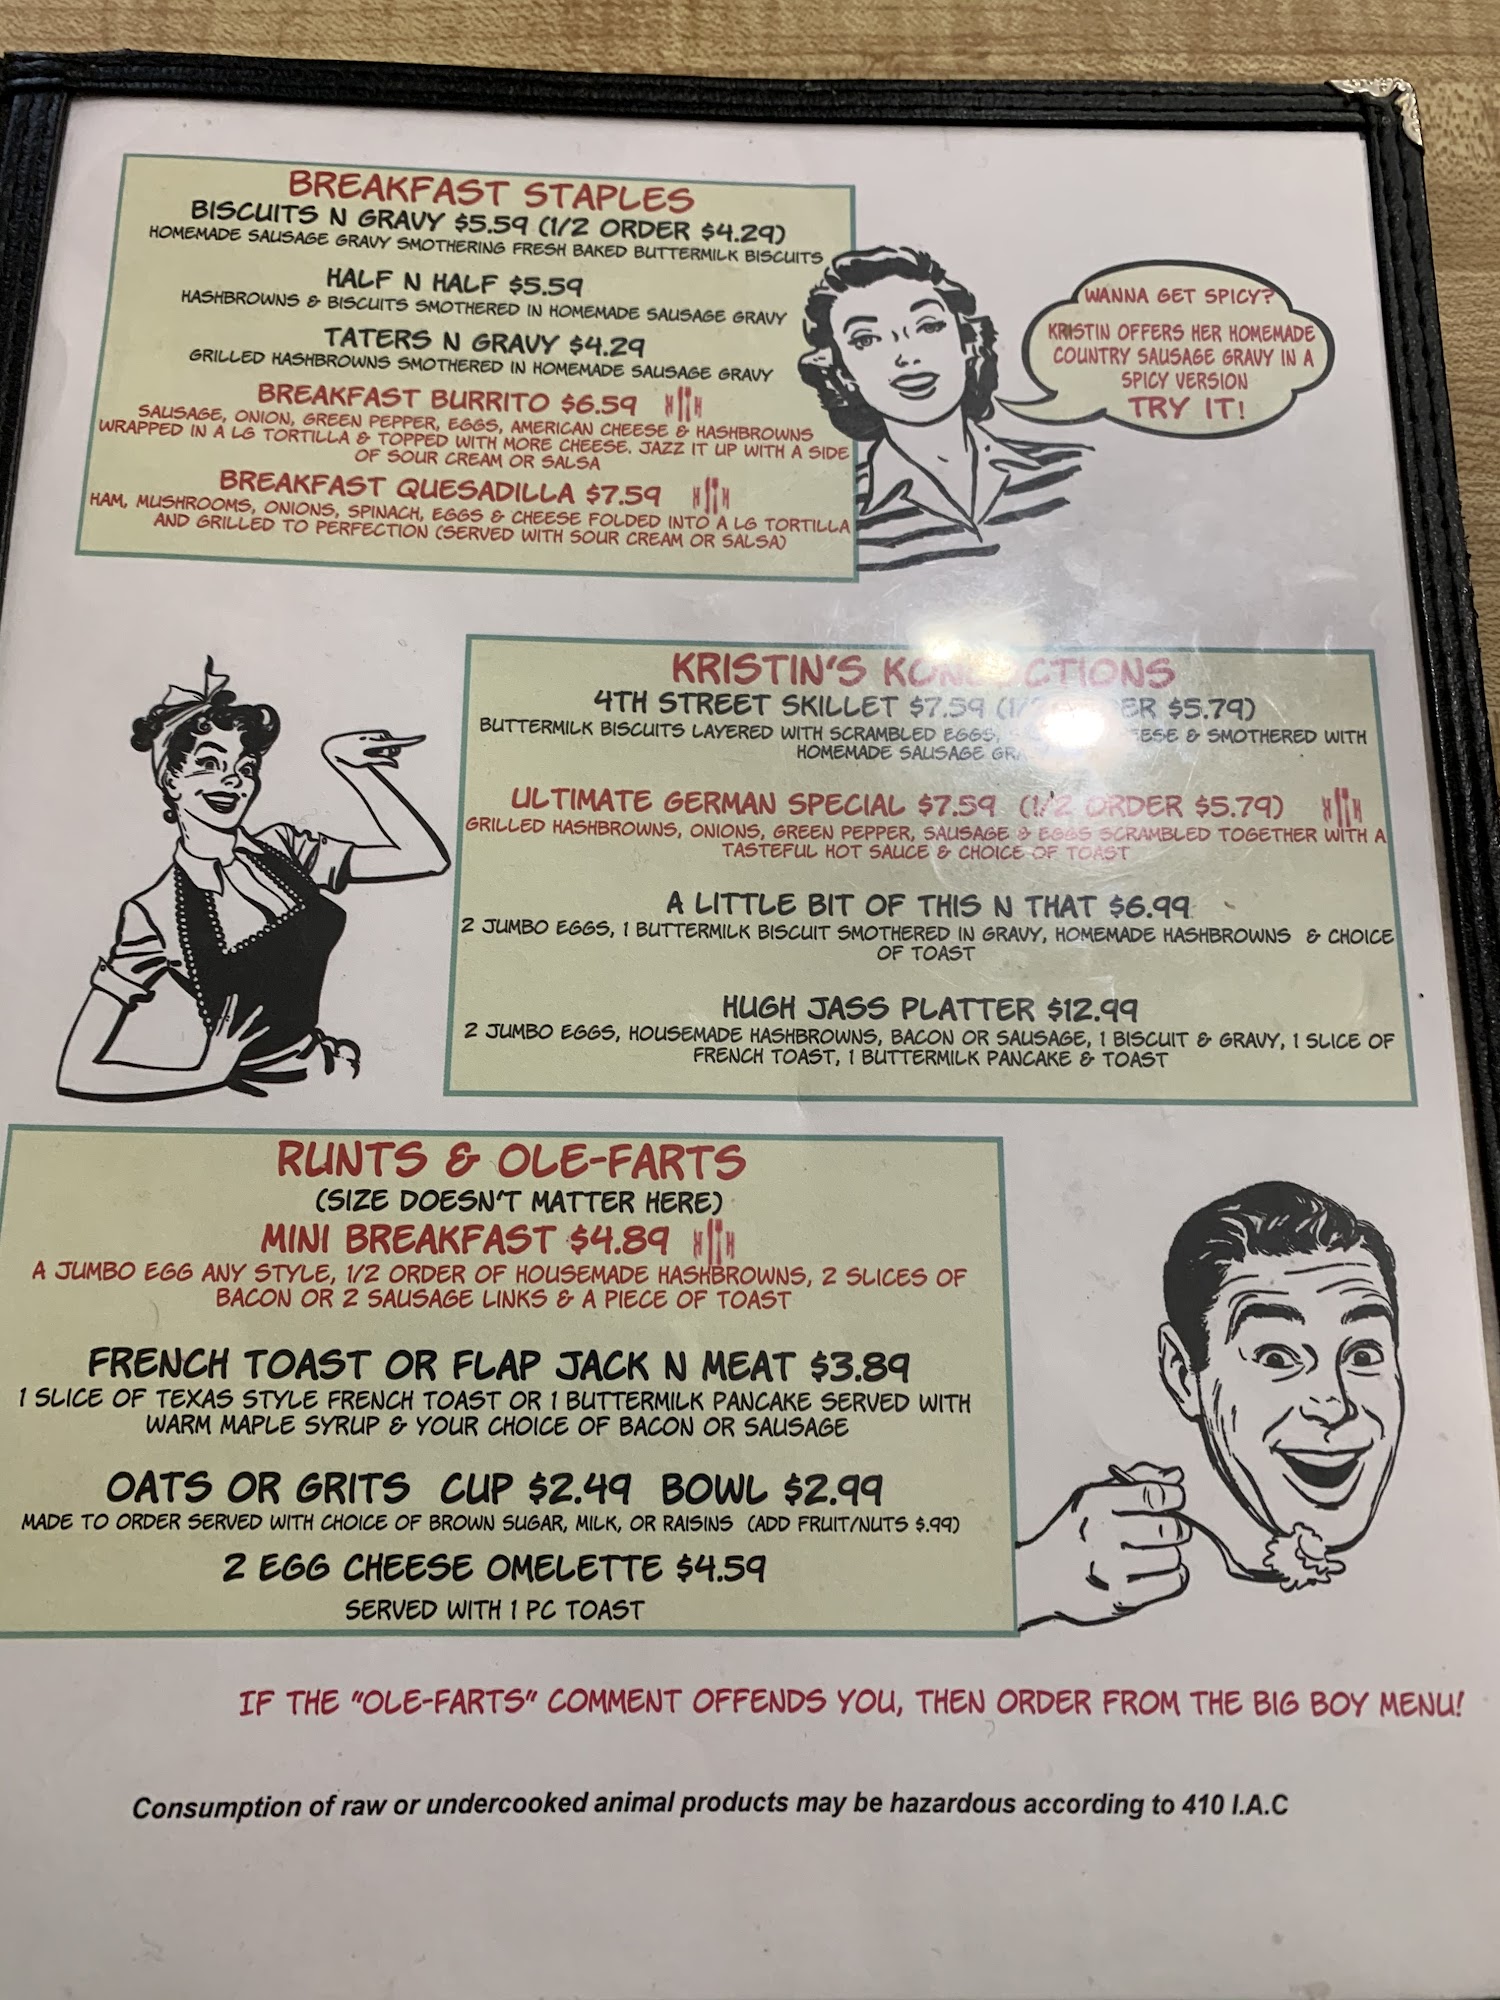 BREAKFAST STAPLES
BISCUITS N GRAVY $5.59 (1/2 ORDER $4.29)
HOMEMADE SAUSAGE GRAVY SMOTHERING FRESH BAKED BUTTERMILK BISCUITS
HALF N HALF $5.59
HASHBROWNS & BISCUITS SMOTHERED IN HOMEMADE SAUSAGE GRAVY
TATERS N GRAVY $4.29
GRILLED HASHBROWNS SMOTHERED IN HOMEMADE SAUSAGE GRAVY
BREAKFAST BURRITO $6.59
SAUSAGE, ONION, GREEN PEPPER, EGGS, AMERICAN CHEESE & HASHBROWNS
WRAPPED IN A LG TORTILLA & TOPPED WITH MORE CHEESE. JAZZ IT UP WITH A SIDE
OF SOUR CREAM OR SALSA
BREAKFAST QUESADILLA $7.59
HAM, MUSHROOMS, ONIONS, SPINACH, EGGS & CHEESE FOLDED INTO A LG TORTILLA
AND GRILLED TO PERFECTION (SERVED WITH SOUR CREAM OR SALSA)
WANNA GET SPICY?
KRISTIN OFFERS HER HOMEMADE
COUNTRY SAUSAGE GRAVY IN A
SPICY VERSION
TRY IT!
KRISTIN'S
4TH STREET SKILLET $7.59 $5.79)
BUTTERMILK BISCUITS LAYERED WITH SCRAMBLED EGGS, & SMOTHERED WITH
HOMEMADE SAUSAGE
ULTIMATE GERMAN SPECIAL $7.59 (1/2 ORDER $5.79)
GRILLED HASHBROWNS, ONIONS, GREEN PEPPER, SAUSAGE & EGGS SCRAMBLED TOGETHER WITH A
TASTEFUL HOT SAUCE & CHOICE OF TOAST
A LITTLE BIT OF THIS N THAT $6.99
2 JUMBO EGGS, 1 BUTTERMILK BISCUIT SMOTHERED IN GRAVY, HOMEMADE HASHBROWNS & CHOICE
OF TOAST
HUGH JASS PLATTER $12.99
2 JUMBO EGGS, HOUSEMADE HASHBROWNS, BACON OR SAUSAGE, 1 BISCUIT & GRAVY, 1 SLICE OF
FRENCH TOAST, 1 BUTTERMILK PANCAKE & TOAST
RUNTS & OLE-FARTS
(SIZE DOESN'T MATTER HERE)
MINI BREAKFAST $4.89
A JUMBO EGG ANY STYLE, 1/2 ORDER OF HOUSEMADE HASHBROWNS, 2 SLICES OF
BACON OR 2 SAUSAGE LINKS & A PIECE OF TOAST
FRENCH TOAST OR FLAP JACK N MEAT $3.89
1 SLICE OF TEXAS STYLE FRENCH TOAST OR 1 BUTTERMILK PANCAKE SERVED WITH
WARM MAPLE SYRUP & YOUR CHOICE OF BACON OR SAUSAGE
OATS OR GRITS CUP $2.49 BOWL $2.99
MADE TO ORDER SERVED WITH CHOICE OF BROWN SUGAR, MILK, OR RAISINS (ADD FRUIT/NUTS $.99)
2 EGG CHEESE OMELETTE $4.59
SERVED WITH 1 PC TOAST
IF THE "OLE-FARTS" COMMENT OFFENDS YOU, THEN ORDER FROM THE BIG BOY MENU!
Consumption of raw or undercooked animal products may be hazardous according to 410 I.A.C